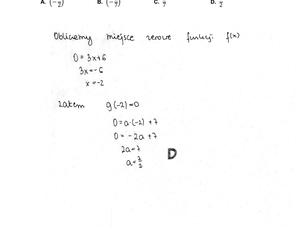 A. (-  B. (-  C.  D.
Obliczamy miejsce zerowe funkcji f(x)
0 = 3x+6
3x=-6
x=-2
zatem g(-2)=0
0=a·(-2)+7
0=-2a+7
2a=7
a=7/2
D